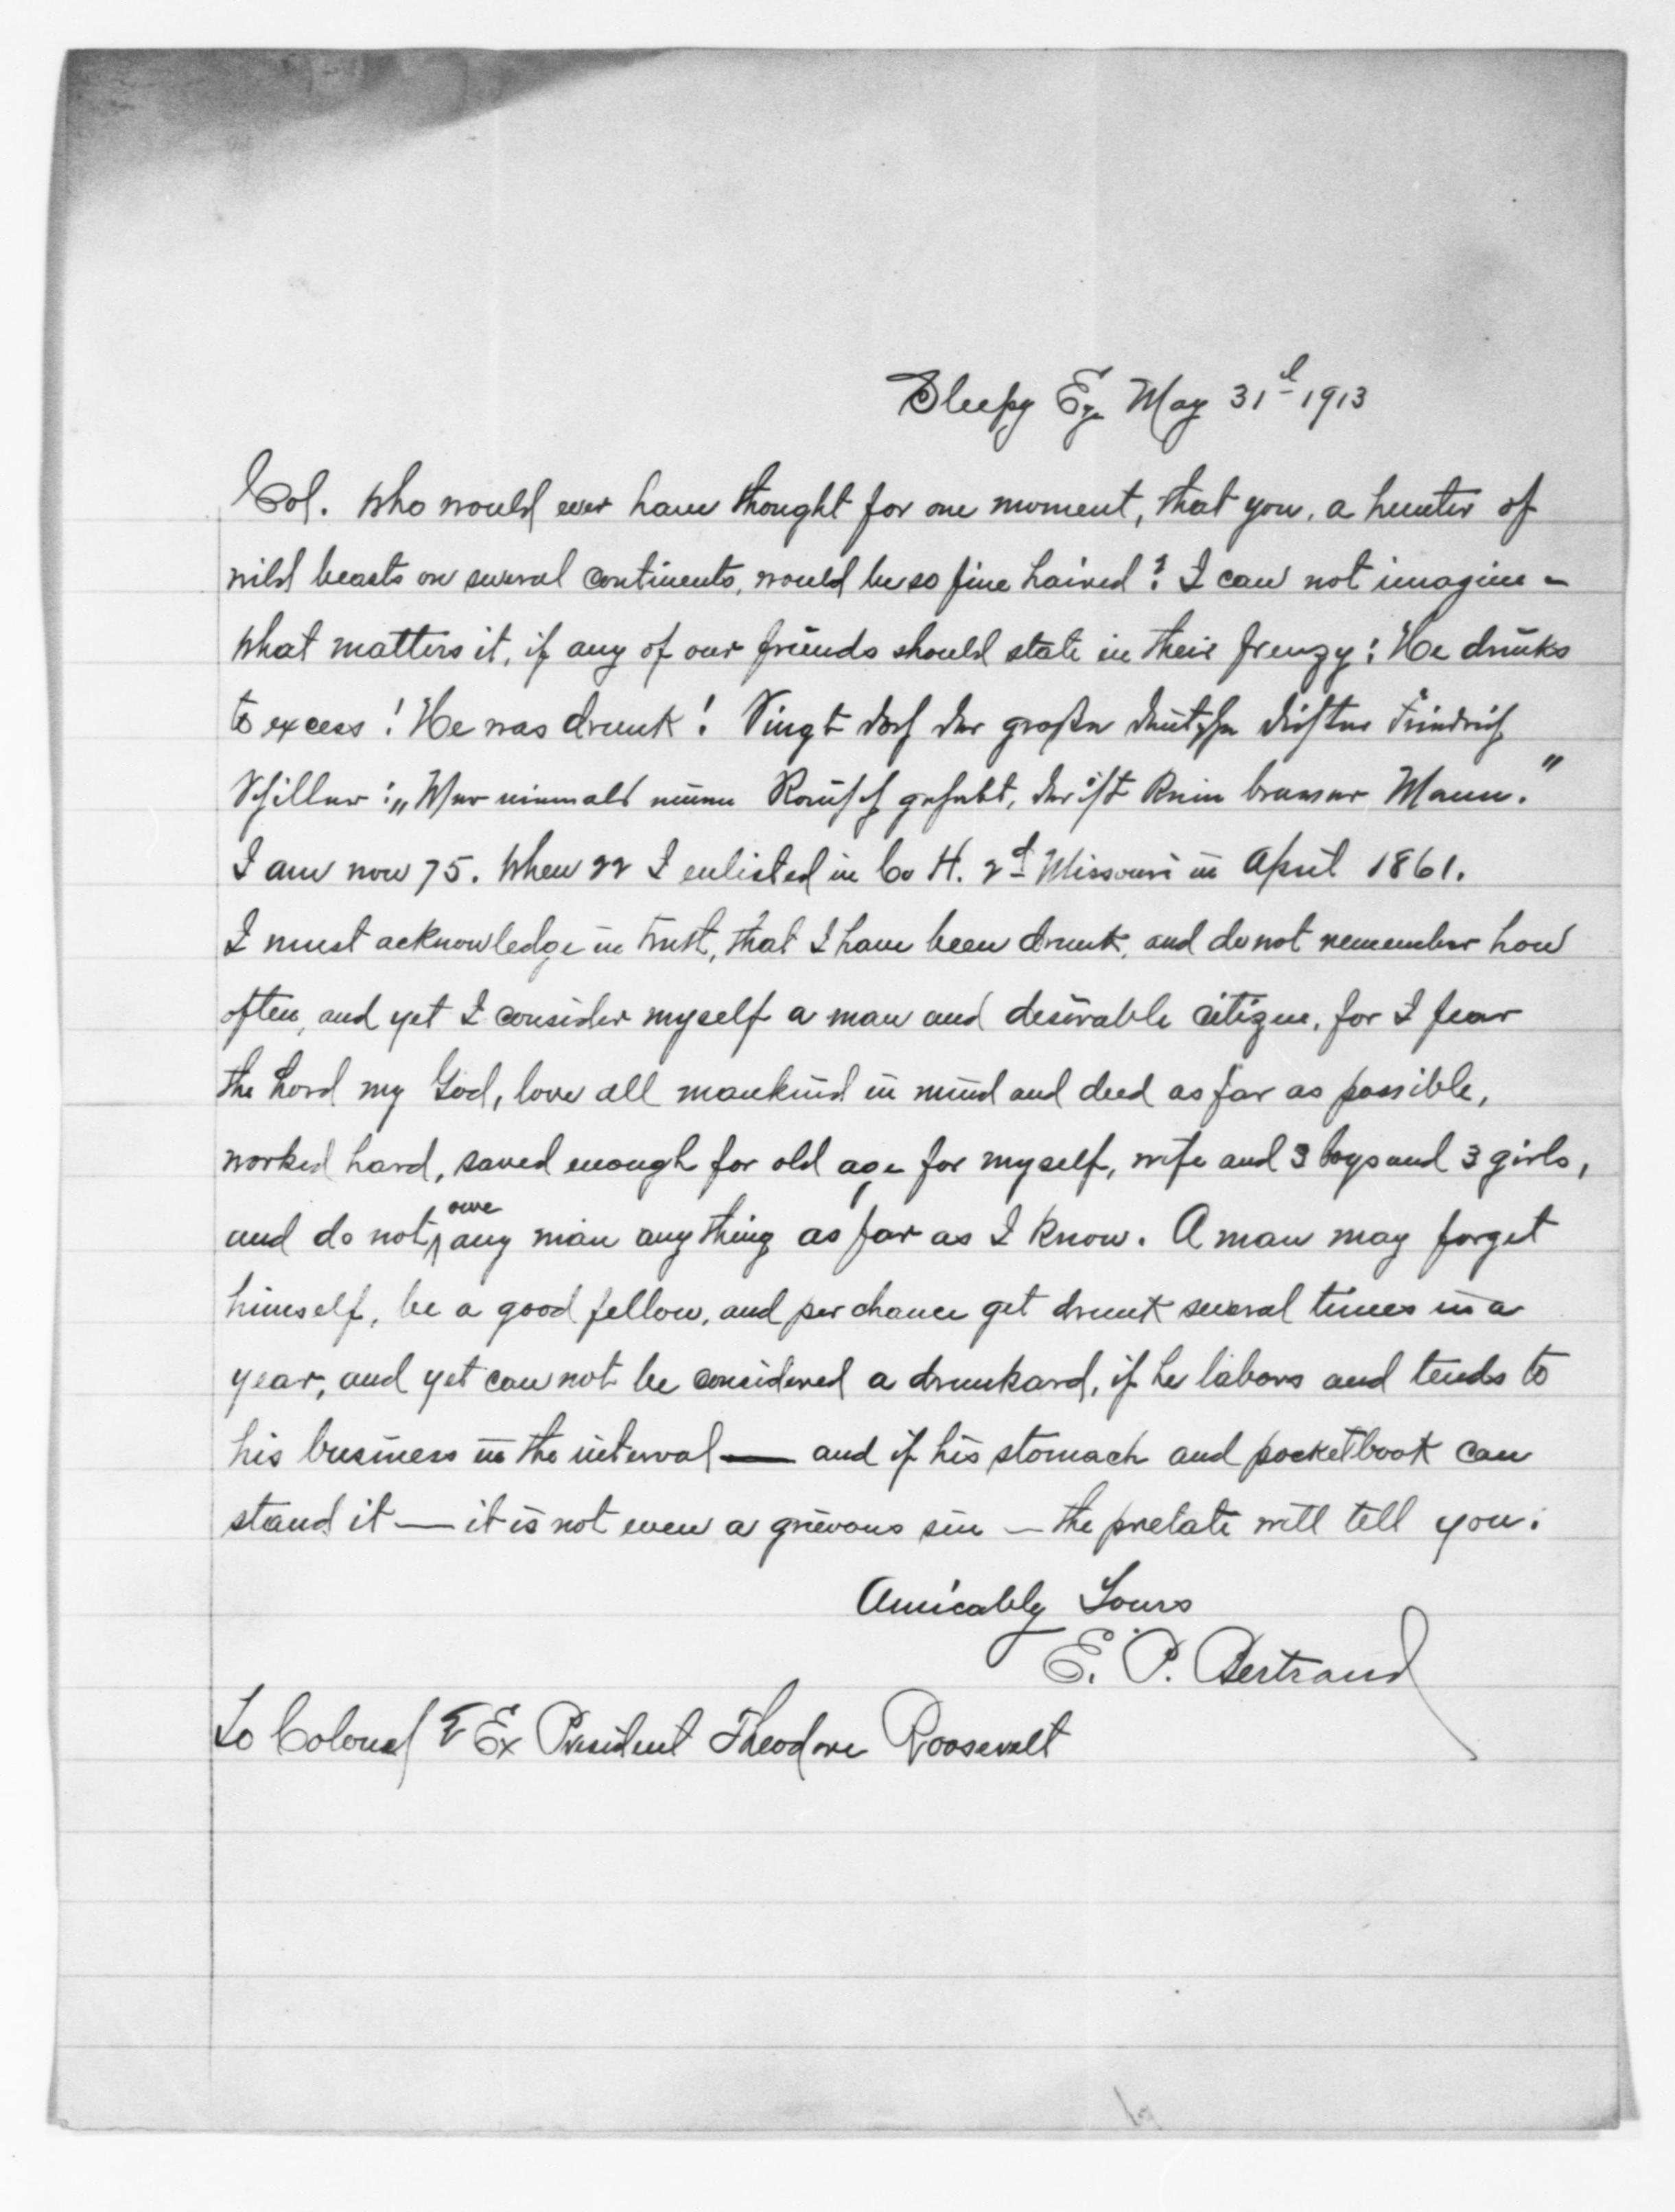 Sleepy Eye May 31st 1913
Col. Who would ever have thought for one moment, that you, a hunter of
wild beasts on several continents, would be so fine haired? I can not imagine –
What matters it, if any of our friends should state in their frenzy: He drinks
to excess! He was drunk! Singt doch der große deutsche Dichter Friedrich
Schiller: „Wer niemals einen Rausch gehabt, der ist kein braver Mann."
I am now 75. When 22 I enlisted in Co H. 2d Missouri in April 1861.
I must acknowledge in trust, that I have been drunk, and do not remember how
often, and yet I consider myself a man and desirable citizen, for I fear
the Lord my God, love all mankind in mind and deed as far as possible,
worked hard, saved enough for old age for myself, wife and 3 boys and 3 girls,
and do not owe any man any thing as far as I know. A man may forget
himself, be a good fellow, and per chance get drunk several times in a
year, and yet can not be considered a drunkard, if he labors and tends to
his business in the interval — and if his stomach and pocketbook can
stand it — it is not even a grievous sin — the prelate will tell you.
Amicably Yours
E. P. Bertrand
To Colonel & Ex President Theodore Roosevelt